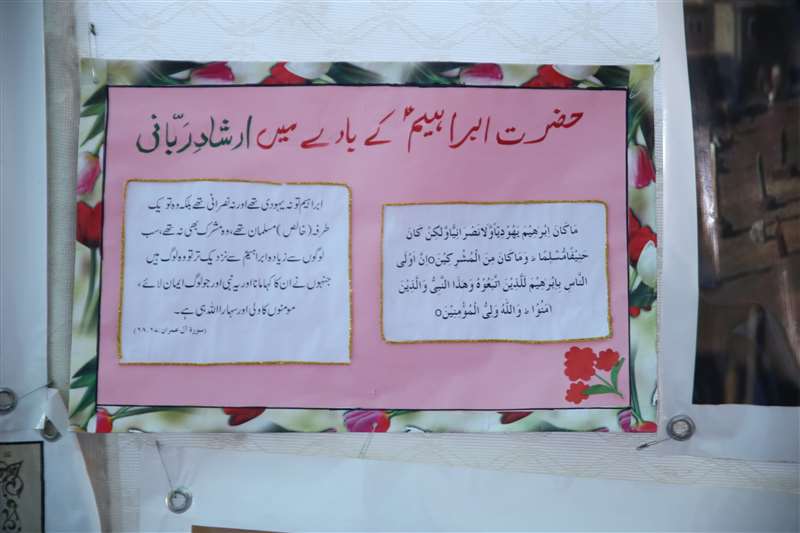 حضرت ابراہیمؑ کے بارے میں ارشادِ ربّانی
مَا كَانَ اِبْرٰهِيْمُ يَهُوْدِيًّا وَّلَا نَصْرَانِيًّا وَّلٰكِنْ كَانَ
حَنِيْفًا مُّسْلِمًا ؕ وَمَا كَانَ مِنَ الْمُشْرِكِيْنَ o اِنَّ اَوْلَى
النَّاسِ بِاِبْرٰهِيْمَ لَلَّذِيْنَ اتَّبَعُوْهُ وَهٰذَا النَّبِىُّ وَالَّذِيْنَ
اٰمَنُوْا ؕ وَاللّٰهُ وَلِىُّ الْمُؤْمِنِيْنَ o
ابراہیم تو نہ یہودی تھے اور نہ نصرانی تھے بلکہ وہ تو یک
طرفہ (خالص) مسلمان تھے، وہ مشرک بھی نہ تھے، سب
لوگوں سے زیادہ ابراہیم سے نزدیک تر تو وہ لوگ ہیں
جنہوں نے ان کا کہا مانا اور یہ نبی اور جو لوگ ایمان لائے،
مومنوں کا ولی اور سہارا اللہ ہی ہے۔
(سورۃ آل عمران ۶۷۔۶۸)